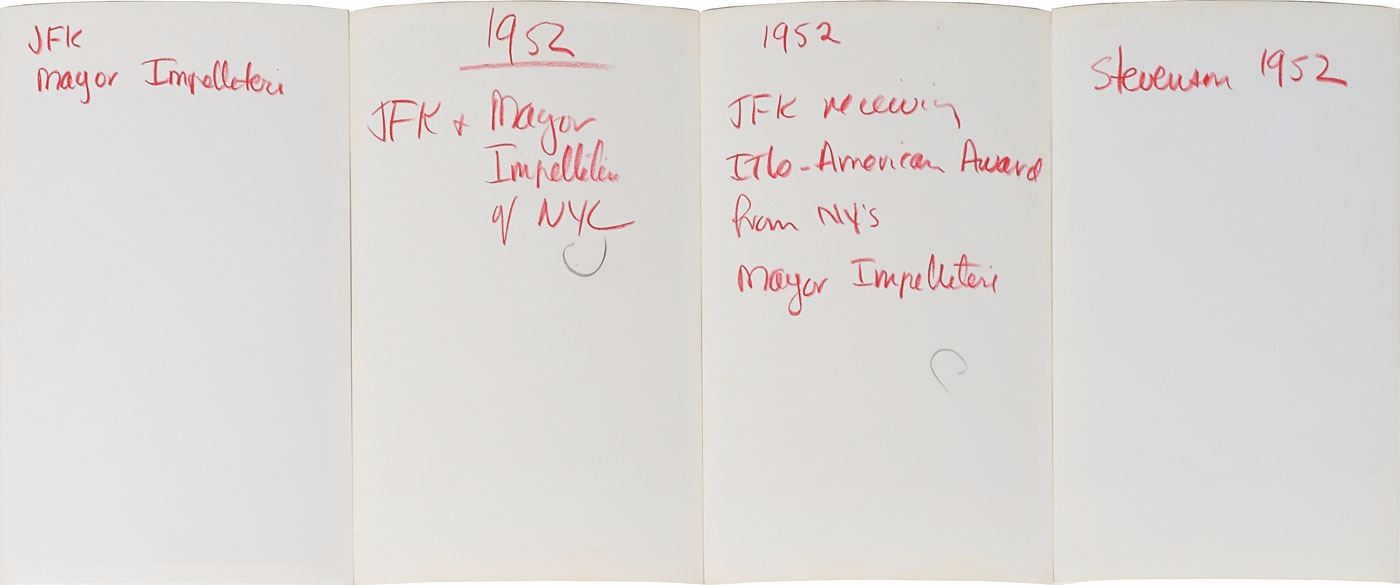 JFK
Mayor Impelleteri
1952
JFK + Mayor
Impelliteri
of NYC
1952
JFK receiving
ITlo-American Award
from NY's
Mayor Impelleteri
Stevenson 1952